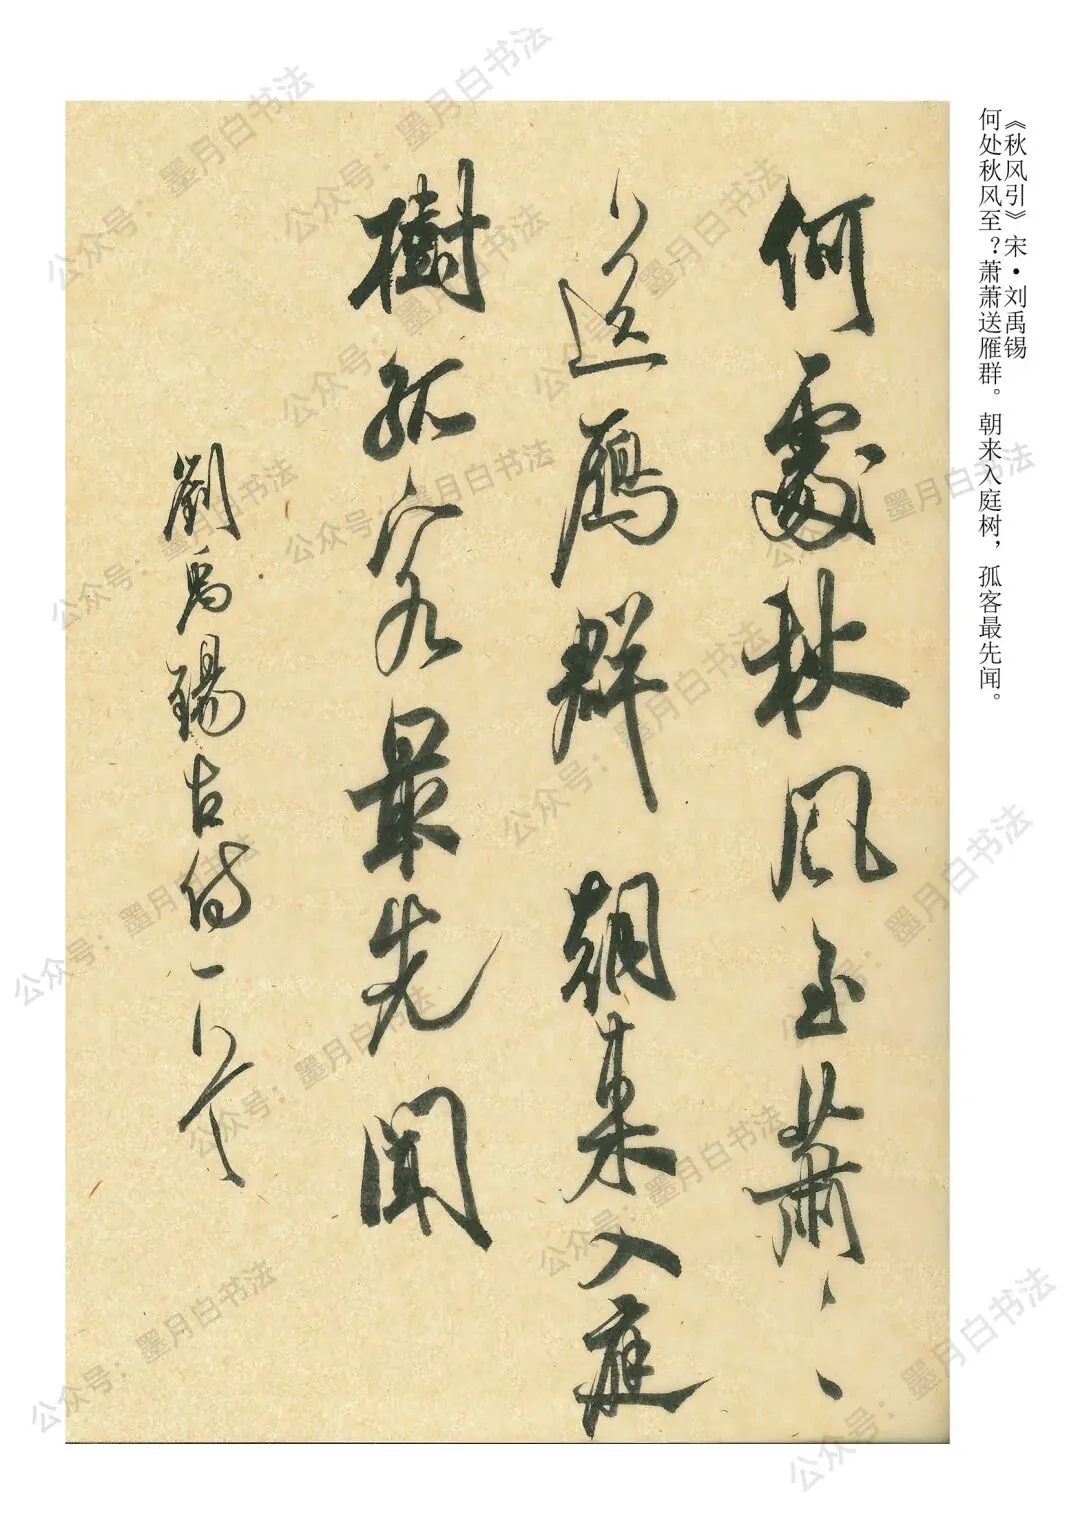 《秋风引》宋•刘禹锡
何处秋风至？萧萧送雁群。朝来入庭树，孤客最先闻。
何處秋风至蕭ミ
送鴈群 朝来入庭
樹孤客最先闻
劉禹錫古诗一首
公众号：墨月白书法